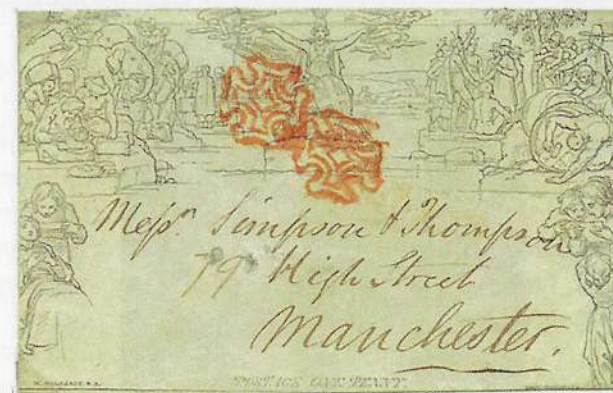 Messrs. Simpson & Thompson
79 High Street
Manchester.
W. MULREADY. R.A.
POSTAGE ONE PENNY.